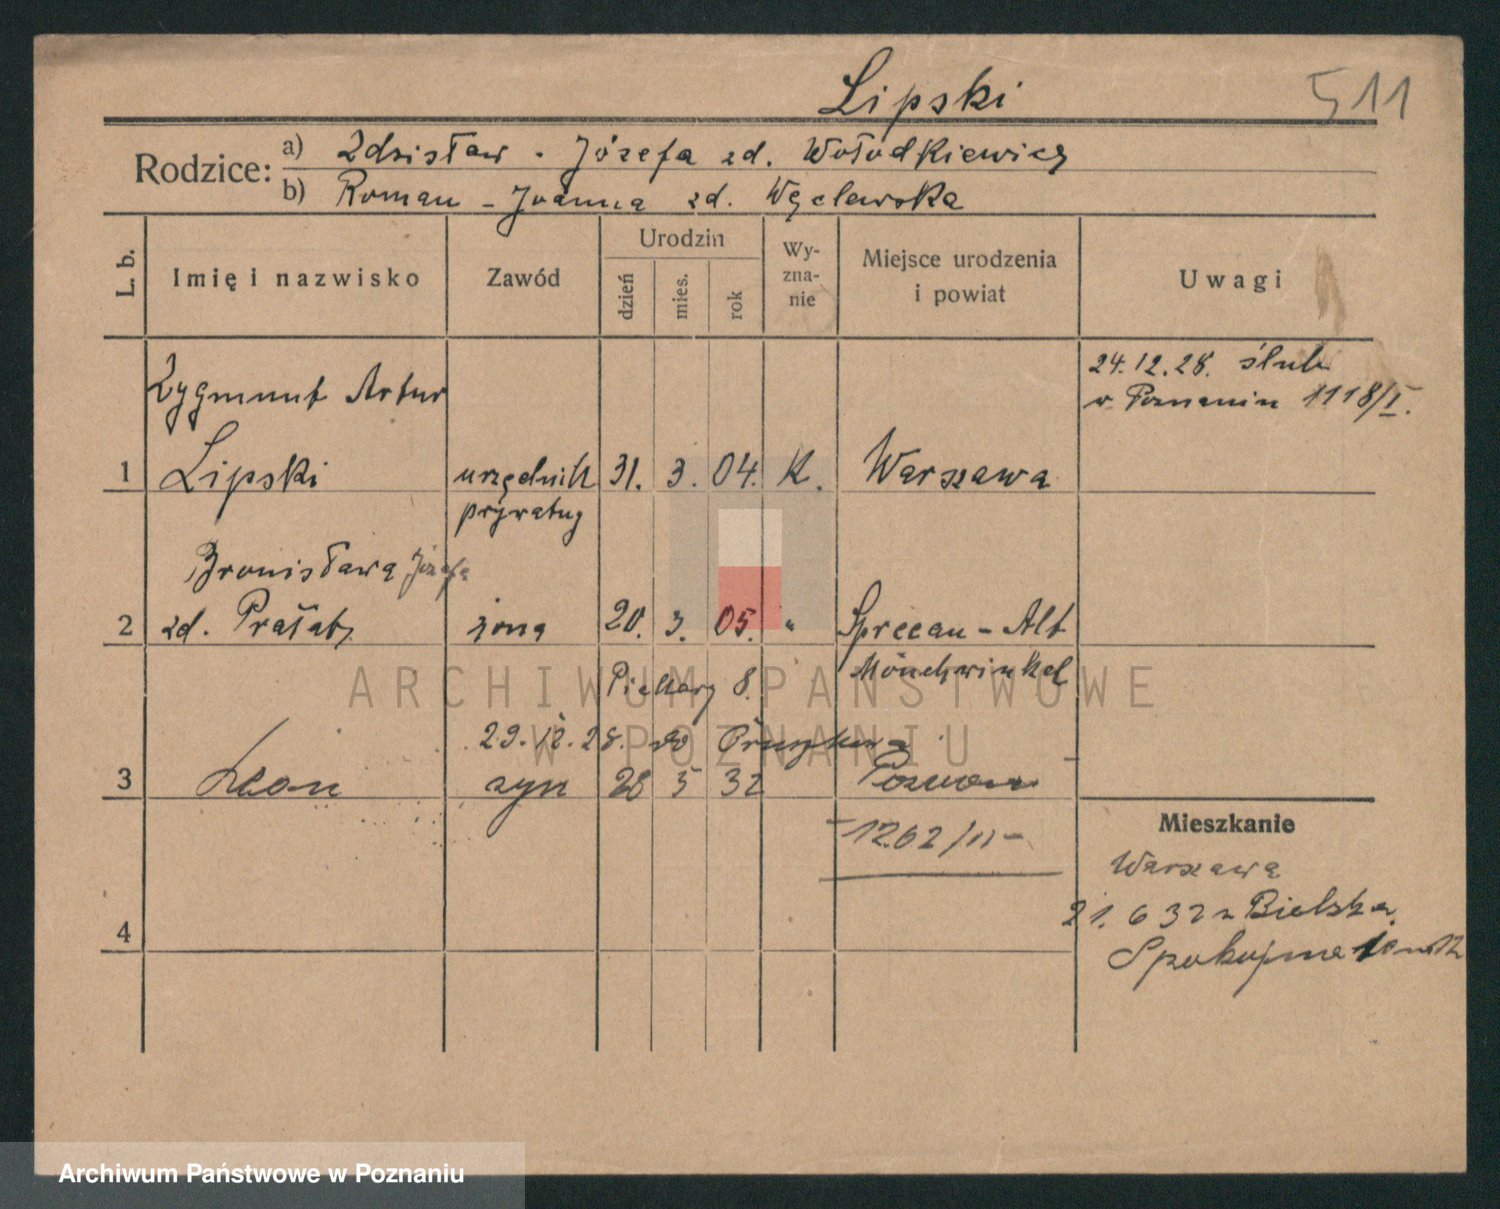 Lipski 511
Rodzice: a) Zdzisław - Józefa zd. Wołodkiewicz
b) Roman - Joanna zd. Węclewska
L. b. Imię i nazwisko Zawód Urodzin Wy-zna-nie Miejsce urodzenia i powiat Uwagi
dzień mies. rok
24.12.28. ślub
w Poznaniu 1118/I.
Zygmunt Artur
1 Lipski urzędnik 31. 3. 04. K. Warszawa
prywatny
Bronisława Józefa
2 zd. żona 20. 3. 05. " Spreeau - Alt
Mönchwinkel
Piekary 8.
29.12.28. do
3 Leon syn 28 5 32 Poznań
1262/II
Mieszkanie
Warszawa
21. 6 32 z Bielska
4
Spokojna
ARCHIWUM PAŃSTWOWE
W POZNANIU
Archiwum Państwowe w Poznaniu